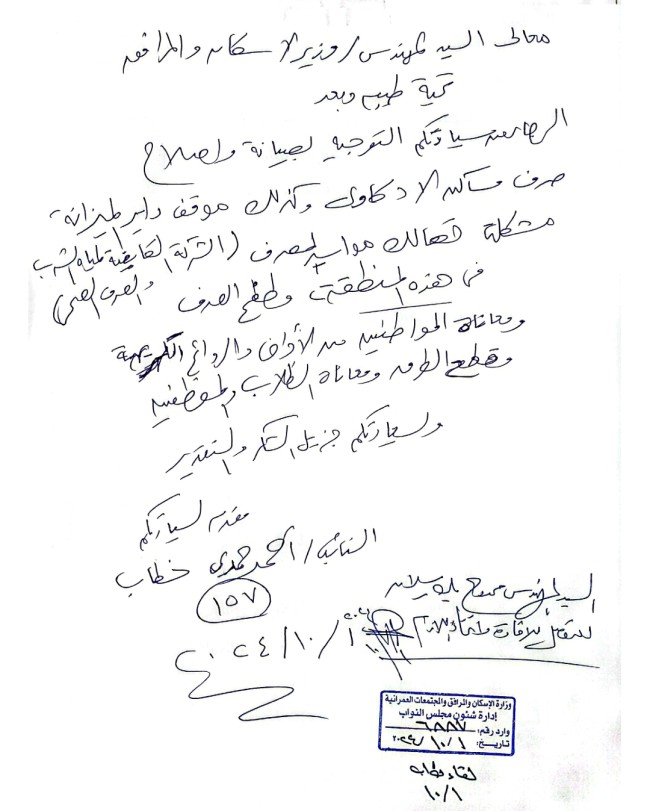 معالى السيد المهندس / وزير الاسكان والمرافق
تحية طيبه وبعد
الرجا من سيادتكم التوجيه لصيانة واصلاح
صرف مساكن الادكاوى وكذلك موقف داير الميزانة
مشكلة تهالك مواسير الصرف (الشركة القابضة لمياه الشرب
والصرف الصحى)
فى هذه المنطقة وطفح الصرف
ومعاناة المواطنين من الأذى والروائح الكريهة
وقطع الطرق ومعاناة الطلاب والموظفين
ولسيادتكم جزيل الشكر والتقدير
مقدمه لسيادتكم
النائب / أحمد حمدى خطاب
١٥٧
٢٠٢٤/١٠/١
السيد المهندس ممدوح رسلان
للتفضل بالافادة واتخاذ اللازم
وزارة الإسكان والمرافق والمجتمعات العمرانية
إدارة شئون مجلس النواب
وارد رقم: ٦٨٨٧
تاريخ: ١٠/١ / ٢٠٢٤
١٠/١